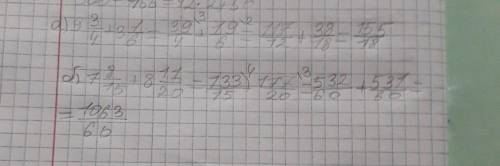 а) 9 3/4 + 3 1/6 = 39/4 + 19/6 = 117/12 + 38/18 = 155/18
б) 7 2/15 + 8 17/20 = 133/15 + 177/20 = 532/60 + 531/60 =
= 1063/60